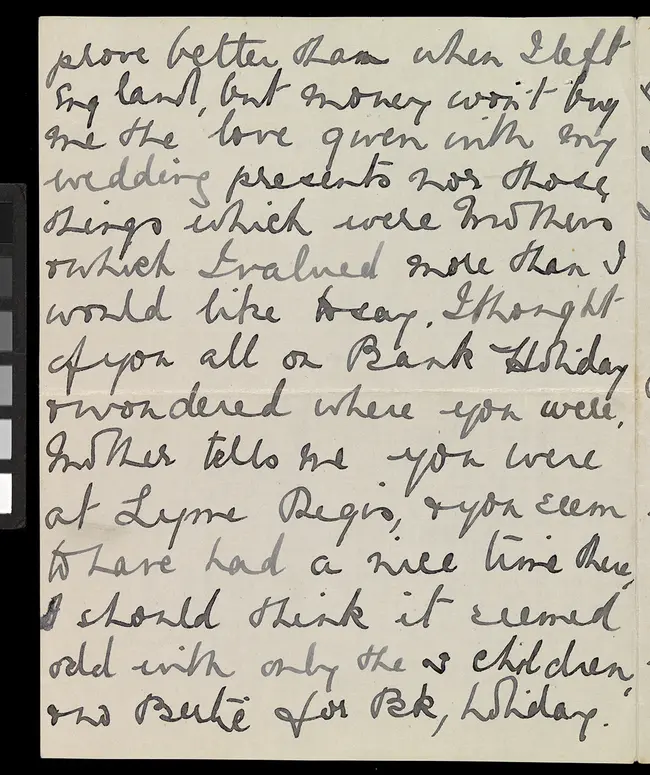 prove better than when I left
England, but money won't buy
me the love given with my
wedding presents nor those
things which were Mothers
& which I valued more than I
would like to say. I thought
of you all on Bank Holiday
& wondered where you were.
Mother tells me you were
at Lyme Regis, & you seem
to have had a nice time there,
I should think it seemed
odd with only the children,
& no Bertie for Bk, holiday.